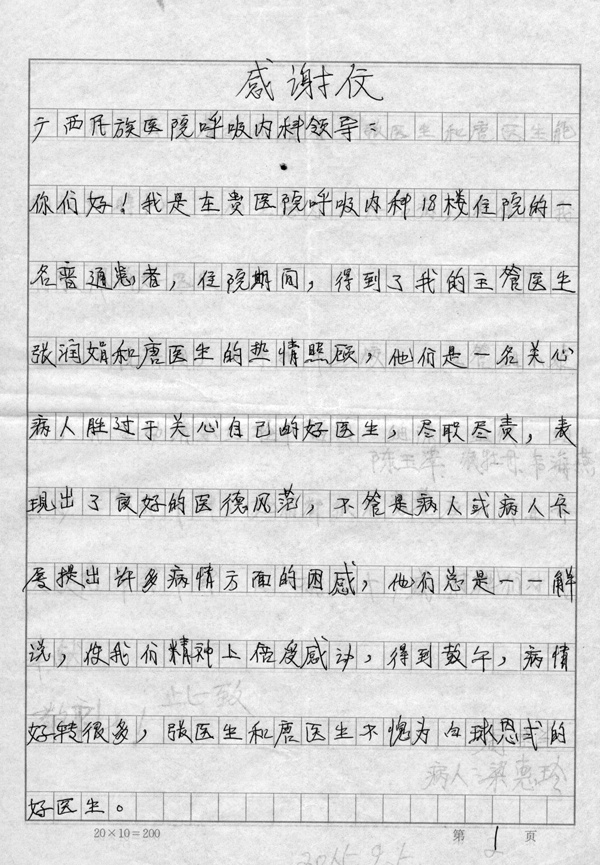 感谢信
广西民族医院呼吸内科领导：
你们好！我是在贵医院呼吸内科18楼住院的一
名普通患者，住院期间，得到了我的主管医生
张润娟和唐医生的热情照顾，他们是一名关心
病人胜过于关心自己的好医生，尽职尽责，表
现出了良好的医德风范，不管是病人或病人家
属提出许多病情方面的困惑，他们总是一一解
说，使我们精神上倍受感动，得到鼓午，病情
好转很多，张医生和唐医生不愧为白球恩式的
好医生。
20×10=200
第 1 页